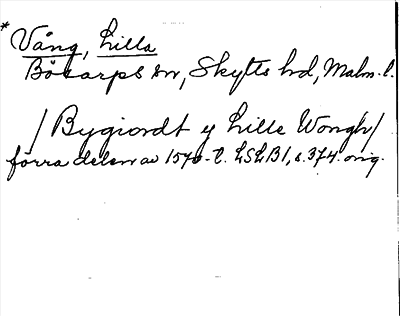 * Vång, Lilla
Bösarps sn, Skytts hd, Malm. l.
/ Bygiordt y Lille Wongh /
förra delen av 1570-t. LSLB1, s. 374. orig.